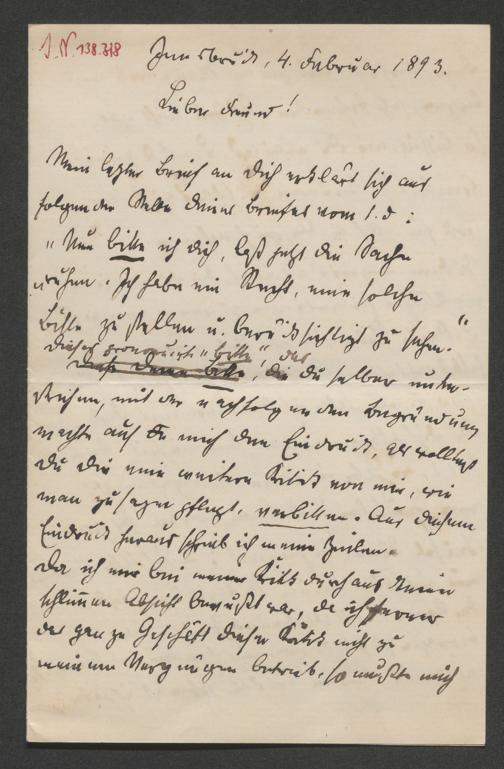 I. N. 138.378
Innsbruck, 4. Februar 1893.
Lieber Freund!
Mein letzter Brief an Dich erklärt sich aus
folgender Stelle Deines Briefes vom 1. d:
"Nun bitte ich Dich, laß jetzt die Sache
ruhen. Ich habe ein Recht, eine solche
Bitte zu stellen u. berücksichtigt zu sehen."
Dieses "bitte", das
Diese Deine Bitte, die Du selber unter-
strichen, mit der nachfolgenden Begründung
machte auf mich den Eindruck, als wolltest
Du Dir eine weitere Kritik von mir, wie
man zu sagen pflegt, verbitten. Aus diesem
Eindruck heraus schrieb ich meine Zeilen.
Da ich mir bei meiner Kritik durchaus keiner
schlimmen Absicht bewußt war, da ich ferner
das ganze Geschäft dieser Kritik nicht zu
meinem Vergnügen betrieb, so mußte mich